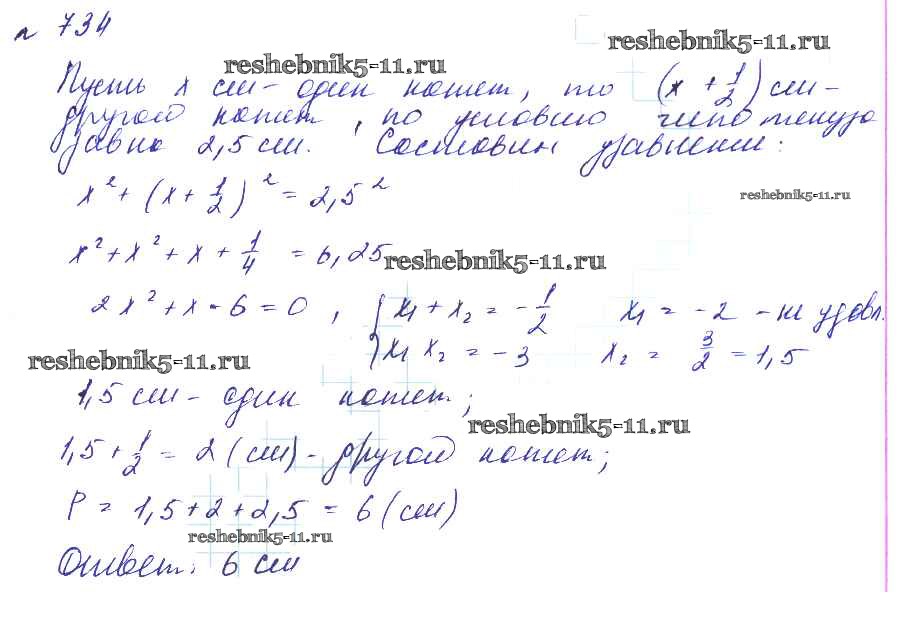 № 734
reshebnik5-11.ru
reshebnik5-11.ru
Пусть x см - один катет, то (x + 1/2) см -
другой катет, по условию гипотенуза
равна 2,5 см. Составим уравнение:
x² + (x + 1/2)² = 2,5²
reshebnik5-11.ru
x² + x² + x + 1/4 = 6,25
reshebnik5-11.ru
2x² + x - 6 = 0, { x₁ + x₂ = -1/2 x₁ = -2 - не удовл.
x₁ x₂ = -3 x₂ = 3/2 = 1,5
reshebnik5-11.ru
1,5 см - один катет;
reshebnik5-11.ru
1,5 + 1/2 = 2 (см) - другой катет;
P = 1,5 + 2 + 2,5 = 6 (см)
reshebnik5-11.ru
Ответ: 6 см